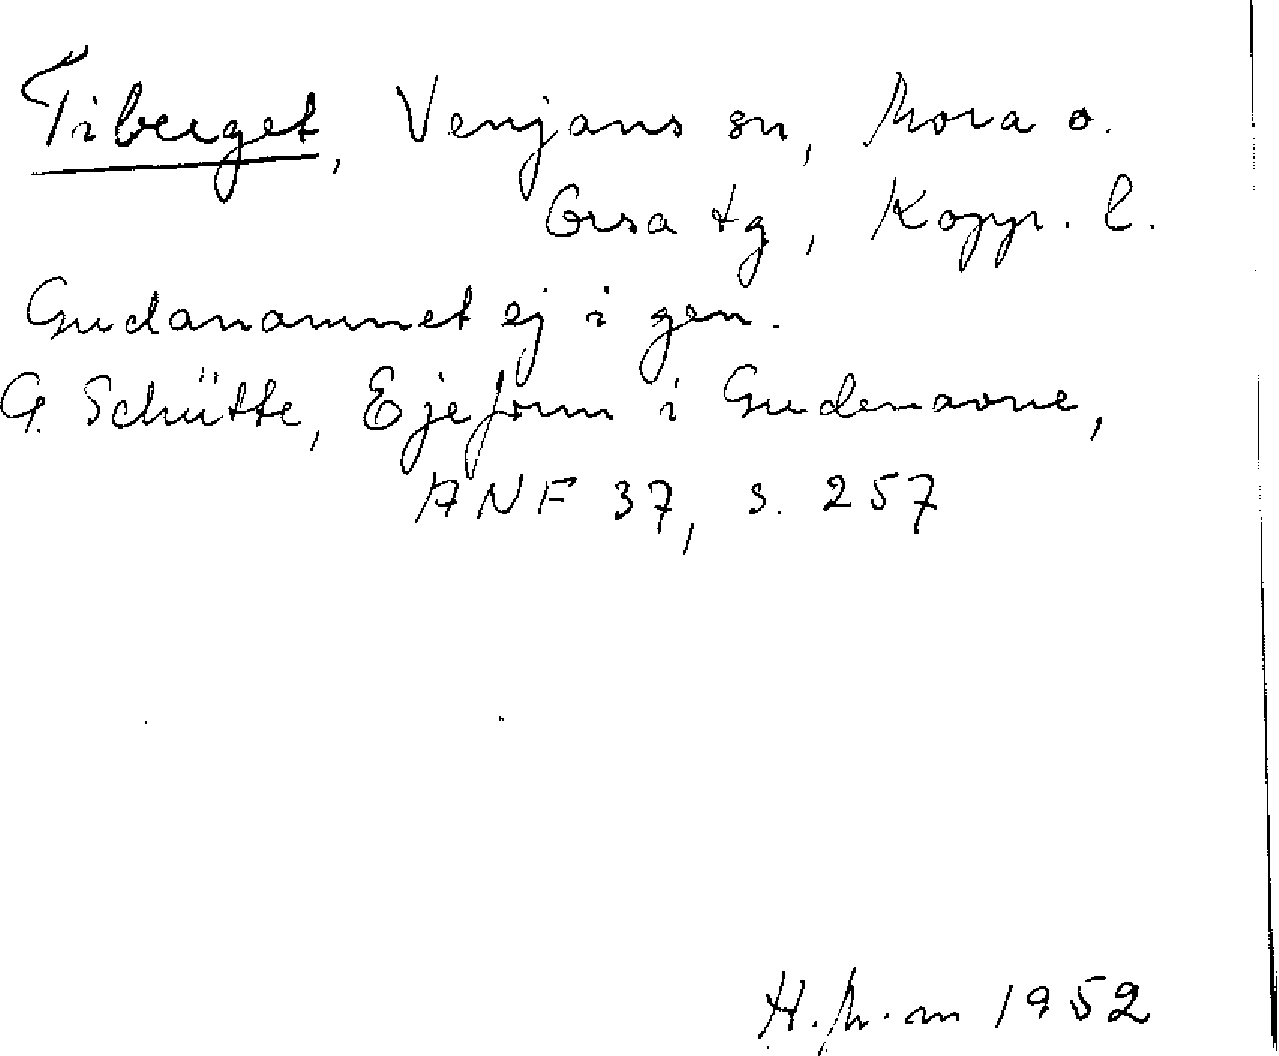 Tiberget, Venjans sn, Mora o.
Orsa tg, Kopp. l.
Gudanamnet ej i gen.
G. Schütte, Ejeform i Gudenavne,
ANF 37, s. 257
H. M.-m 1952